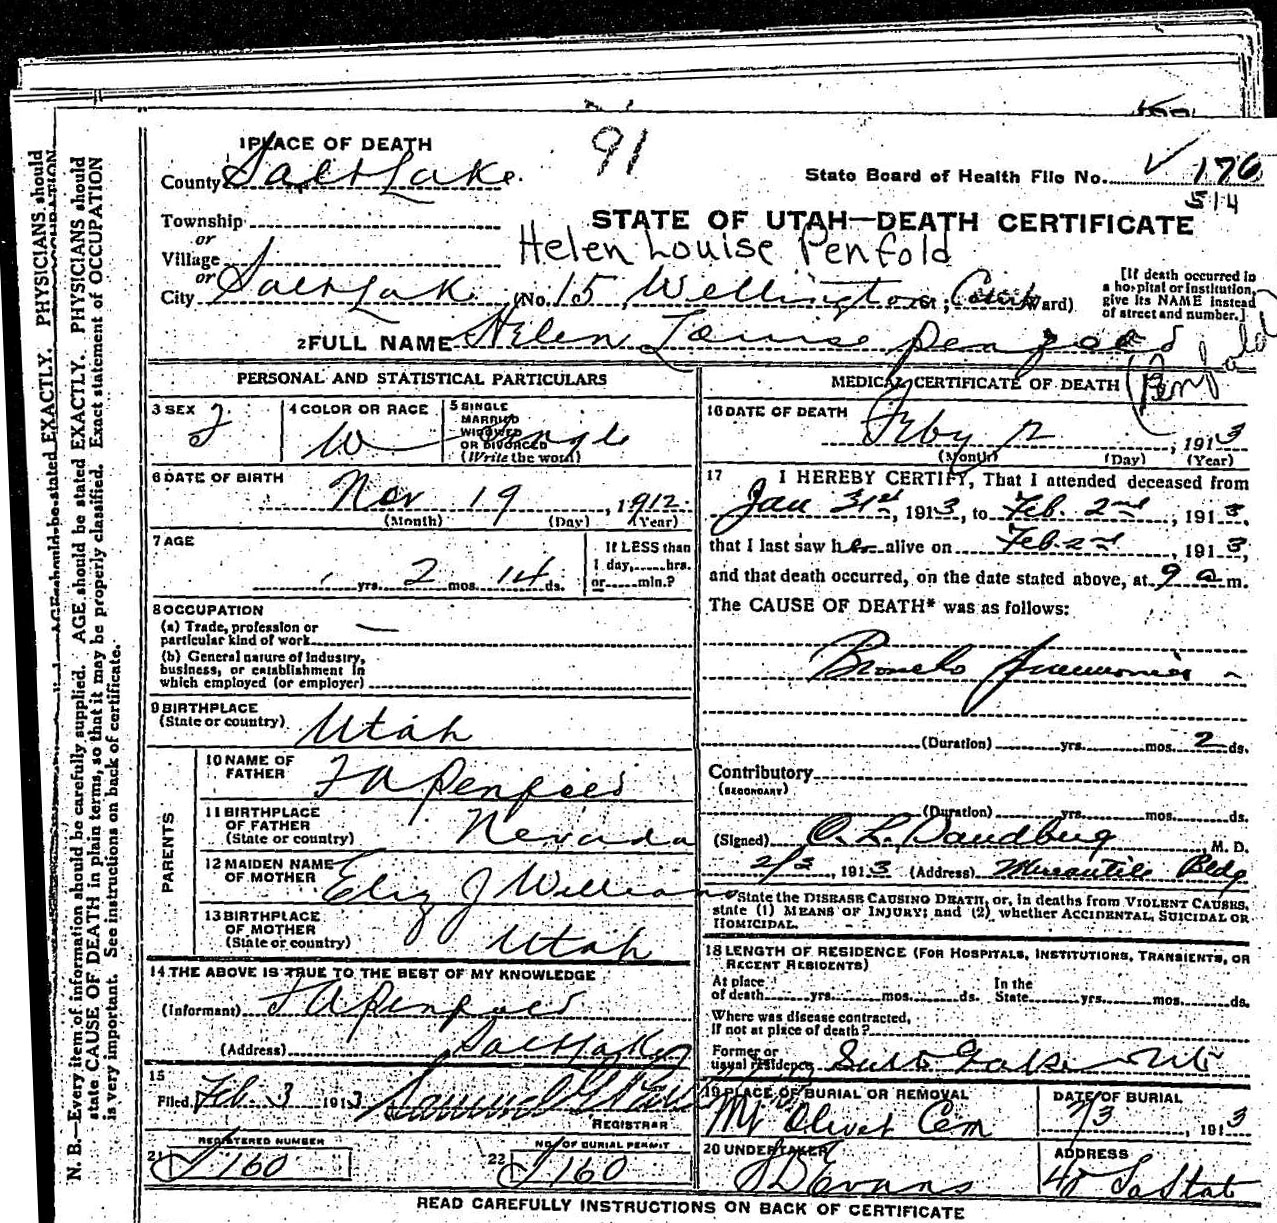 91
1 PLACE OF DEATH
County Salt Lake.
State Board of Health File No. 176
514
Township
STATE OF UTAH—DEATH CERTIFICATE
or
Village
Helen Louise Penfold
or
City Salt Lake (No. 15 Wellington St.; Court Ward)
[If death occurred in
a hospital or institution,
give its NAME instead
of street and number.]
2 FULL NAME Helen Louise Penfold
(Penfold
PERSONAL AND STATISTICAL PARTICULARS
3 SEX F
4 COLOR OR RACE W
5 SINGLE
MARRIED
WIDOWED
OR DIVORCED
(Write the word)
Single
6 DATE OF BIRTH
Nov 19, 1912
(Month) (Day) (Year)
7 AGE
yrs. 2 mos. 14 ds.
If LESS than
1 day, hrs.
or min.?
8 OCCUPATION
(a) Trade, profession or
particular kind of work —
(b) General nature of industry,
business, or establishment in
which employed (or employer)
9 BIRTHPLACE
(State or country) Utah
PARENTS
10 NAME OF
FATHER F A Penfold
11 BIRTHPLACE
OF FATHER
(State or country) Nevada
12 MAIDEN NAME
OF MOTHER Eliz J Williams
13 BIRTHPLACE
OF MOTHER
(State or country) Utah
14 THE ABOVE IS TRUE TO THE BEST OF MY KNOWLEDGE
(Informant) F A Penfold
(Address) Salt Lake
15
Filed Feb. 3 1913 Samuel G
REGISTRAR
21 REGISTERED NUMBER
160
22 NO. OF BURIAL PERMIT
160
MEDICAL CERTIFICATE OF DEATH
16 DATE OF DEATH
Feby 2, 1913
(Month) (Day) (Year)
17 I HEREBY CERTIFY, That I attended deceased from
Jan 31st, 1913, to Feb. 2nd, 1913,
that I last saw her alive on Feb. 2nd, 1913,
and that death occurred, on the date stated above, at 9 a m.
The CAUSE OF DEATH* was as follows:
Broncho pneumonia
(Duration) yrs. mos. 2 ds.
Contributory
(SECONDARY)
(Duration) yrs. mos. ds.
(Signed) O. L. , M. D.
, 1913 (Address) Mercantile Bldg
*State the DISEASE CAUSING DEATH, or, in deaths from VIOLENT CAUSES,
state (1) MEANS OF INJURY; and (2) whether ACCIDENTAL, SUICIDAL OR
HOMICIDAL.
18 LENGTH OF RESIDENCE (FOR HOSPITALS, INSTITUTIONS, TRANSIENTS, OR
RECENT RESIDENTS)
At place
of death yrs. mos. ds.
In the
State yrs. mos. ds.
Where was disease contracted,
If not at place of death?
Former or
usual residence Salt Lake Ut
19 PLACE OF BURIAL OR REMOVAL
Mt Olivet Cem
DATE OF BURIAL
2/3, 1913
20 UNDERTAKER
Evans
ADDRESS
48 So State
READ CAREFULLY INSTRUCTIONS ON BACK OF CERTIFICATE
N. B.—Every item of information should be carefully supplied. AGE should be stated EXACTLY. PHYSICIANS should
state CAUSE OF DEATH in plain terms, so that it may be properly classified. Exact statement of OCCUPATION
is very important. See instructions on back of certificate.